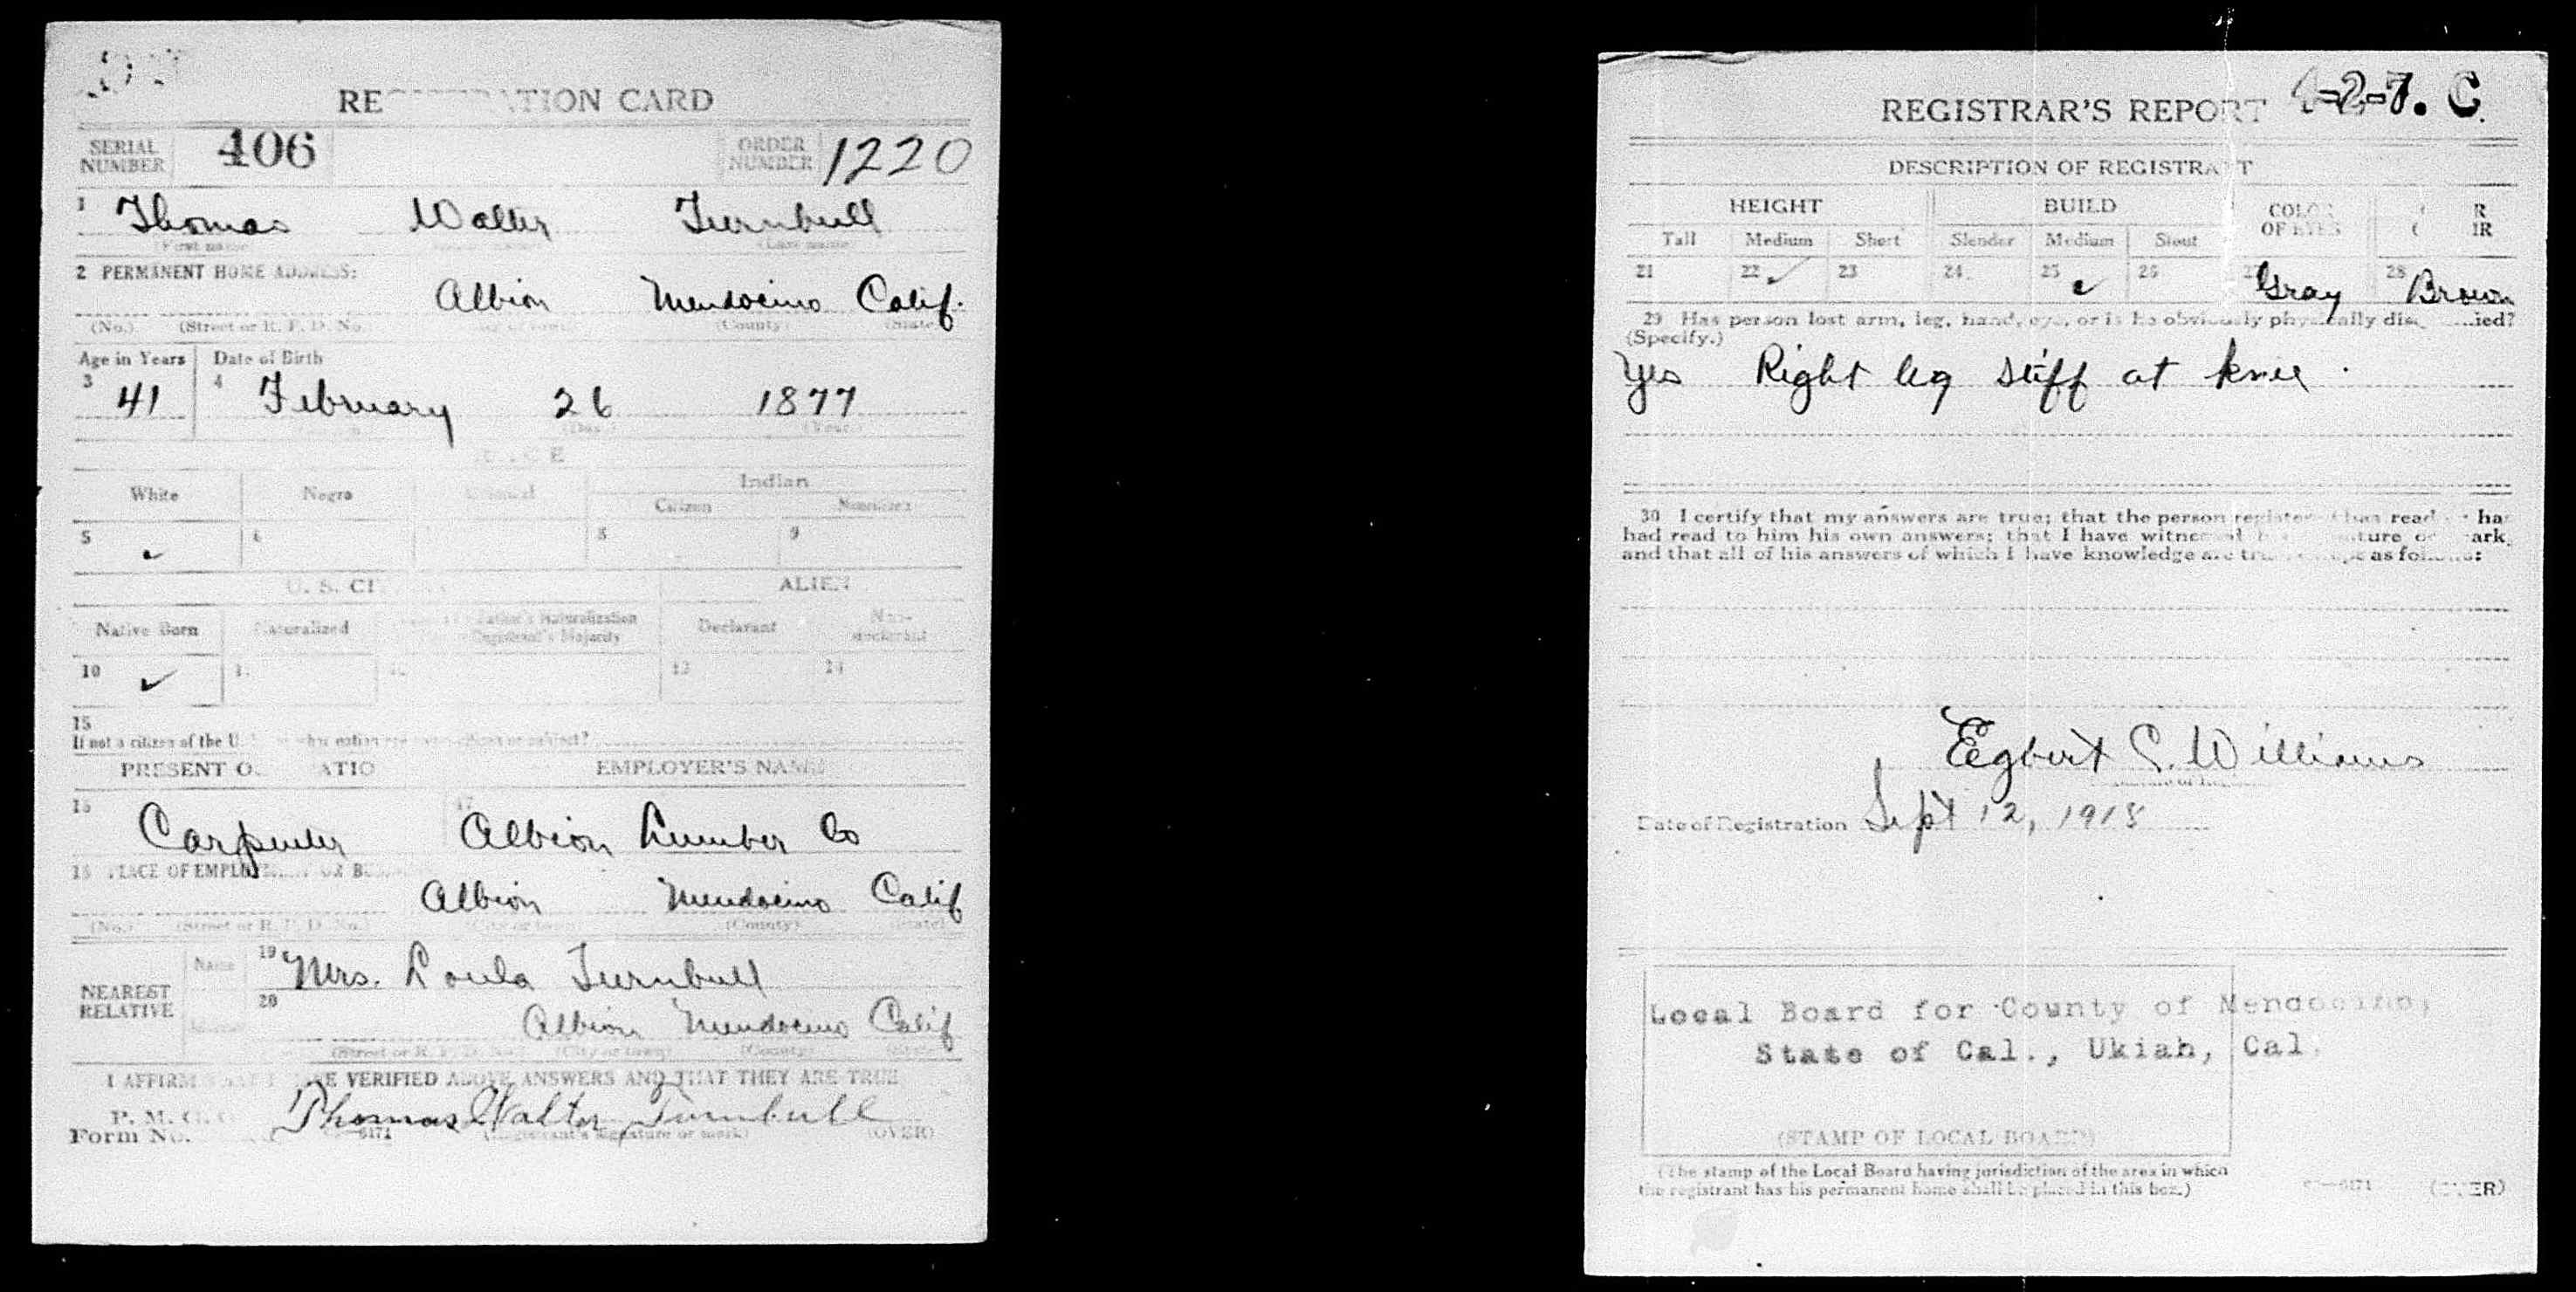 REGISTRATION CARD
SERIAL NUMBER 406 ORDER NUMBER 1220
1 Thomas Walter Turnbull
(First name) (Last name)
2 PERMANENT HOME ADDRESS:
Albion Mendocino Calif.
(No.) (Street or R. F. D. No.) (County) (State)
Age in Years Date of Birth
3 41 4 February 26 1877
(Day) (Year)
RACE
White Negro Oriental Indian
Citizen Noncitizen
5 ✓ 6 8 9
U. S. CITIZEN ALIEN
Native Born Naturalized Father's Naturalization Registrant's Majority Declarant Non-declarant
10 ✓ 13 14
15
If not a citizen of the U.
PRESENT OCCUPATION EMPLOYER'S NAME
16 Carpenter 17 Albion Lumber Co
18 PLACE OF EMPLOYMENT OR BUSINESS
Albion Mendocino Calif
(No.) (Street or R. F. D. No.) (City or town) (County) (State)
NEAREST RELATIVE Name 19 Mrs. Loula Turnbull
Address 20 Albion Mendocino Calif
(Street or R. F. D. No.) (City or town) (County) (State)
I AFFIRM THAT I HAVE VERIFIED ABOVE ANSWERS AND THAT THEY ARE TRUE
P. M. G. O.
Form No. 6171 Thomas Walter Turnbull
(Registrant's signature or mark) (OVER)
REGISTRAR'S REPORT 4-2-7. C.
DESCRIPTION OF REGISTRANT
HEIGHT BUILD COLOR OF EYES
Tall Medium Short Slender Medium Stout
21 22 ✓ 23 24 25 ✓ 26 27 Gray 28 Brown
29 Has person lost arm, leg, hand, eye, or is he obviously physically disqualified?
(Specify.)
Yes Right leg stiff at knee.
30 I certify that my answers are true; that the person registered has read or has
had read to him his own answers; that I have witnessed his signature or mark,
and that all of his answers of which I have knowledge are true, except as follows:
Egbert C. Williams
Date of Registration Sept 12, 1918
Local Board for County of Mendocino,
State of Cal., Ukiah, Cal.
(STAMP OF LOCAL BOARD)
(The stamp of the Local Board having jurisdiction of the area in which
the registrant has his permanent home shall be placed in this box.)
6171 (OVER)